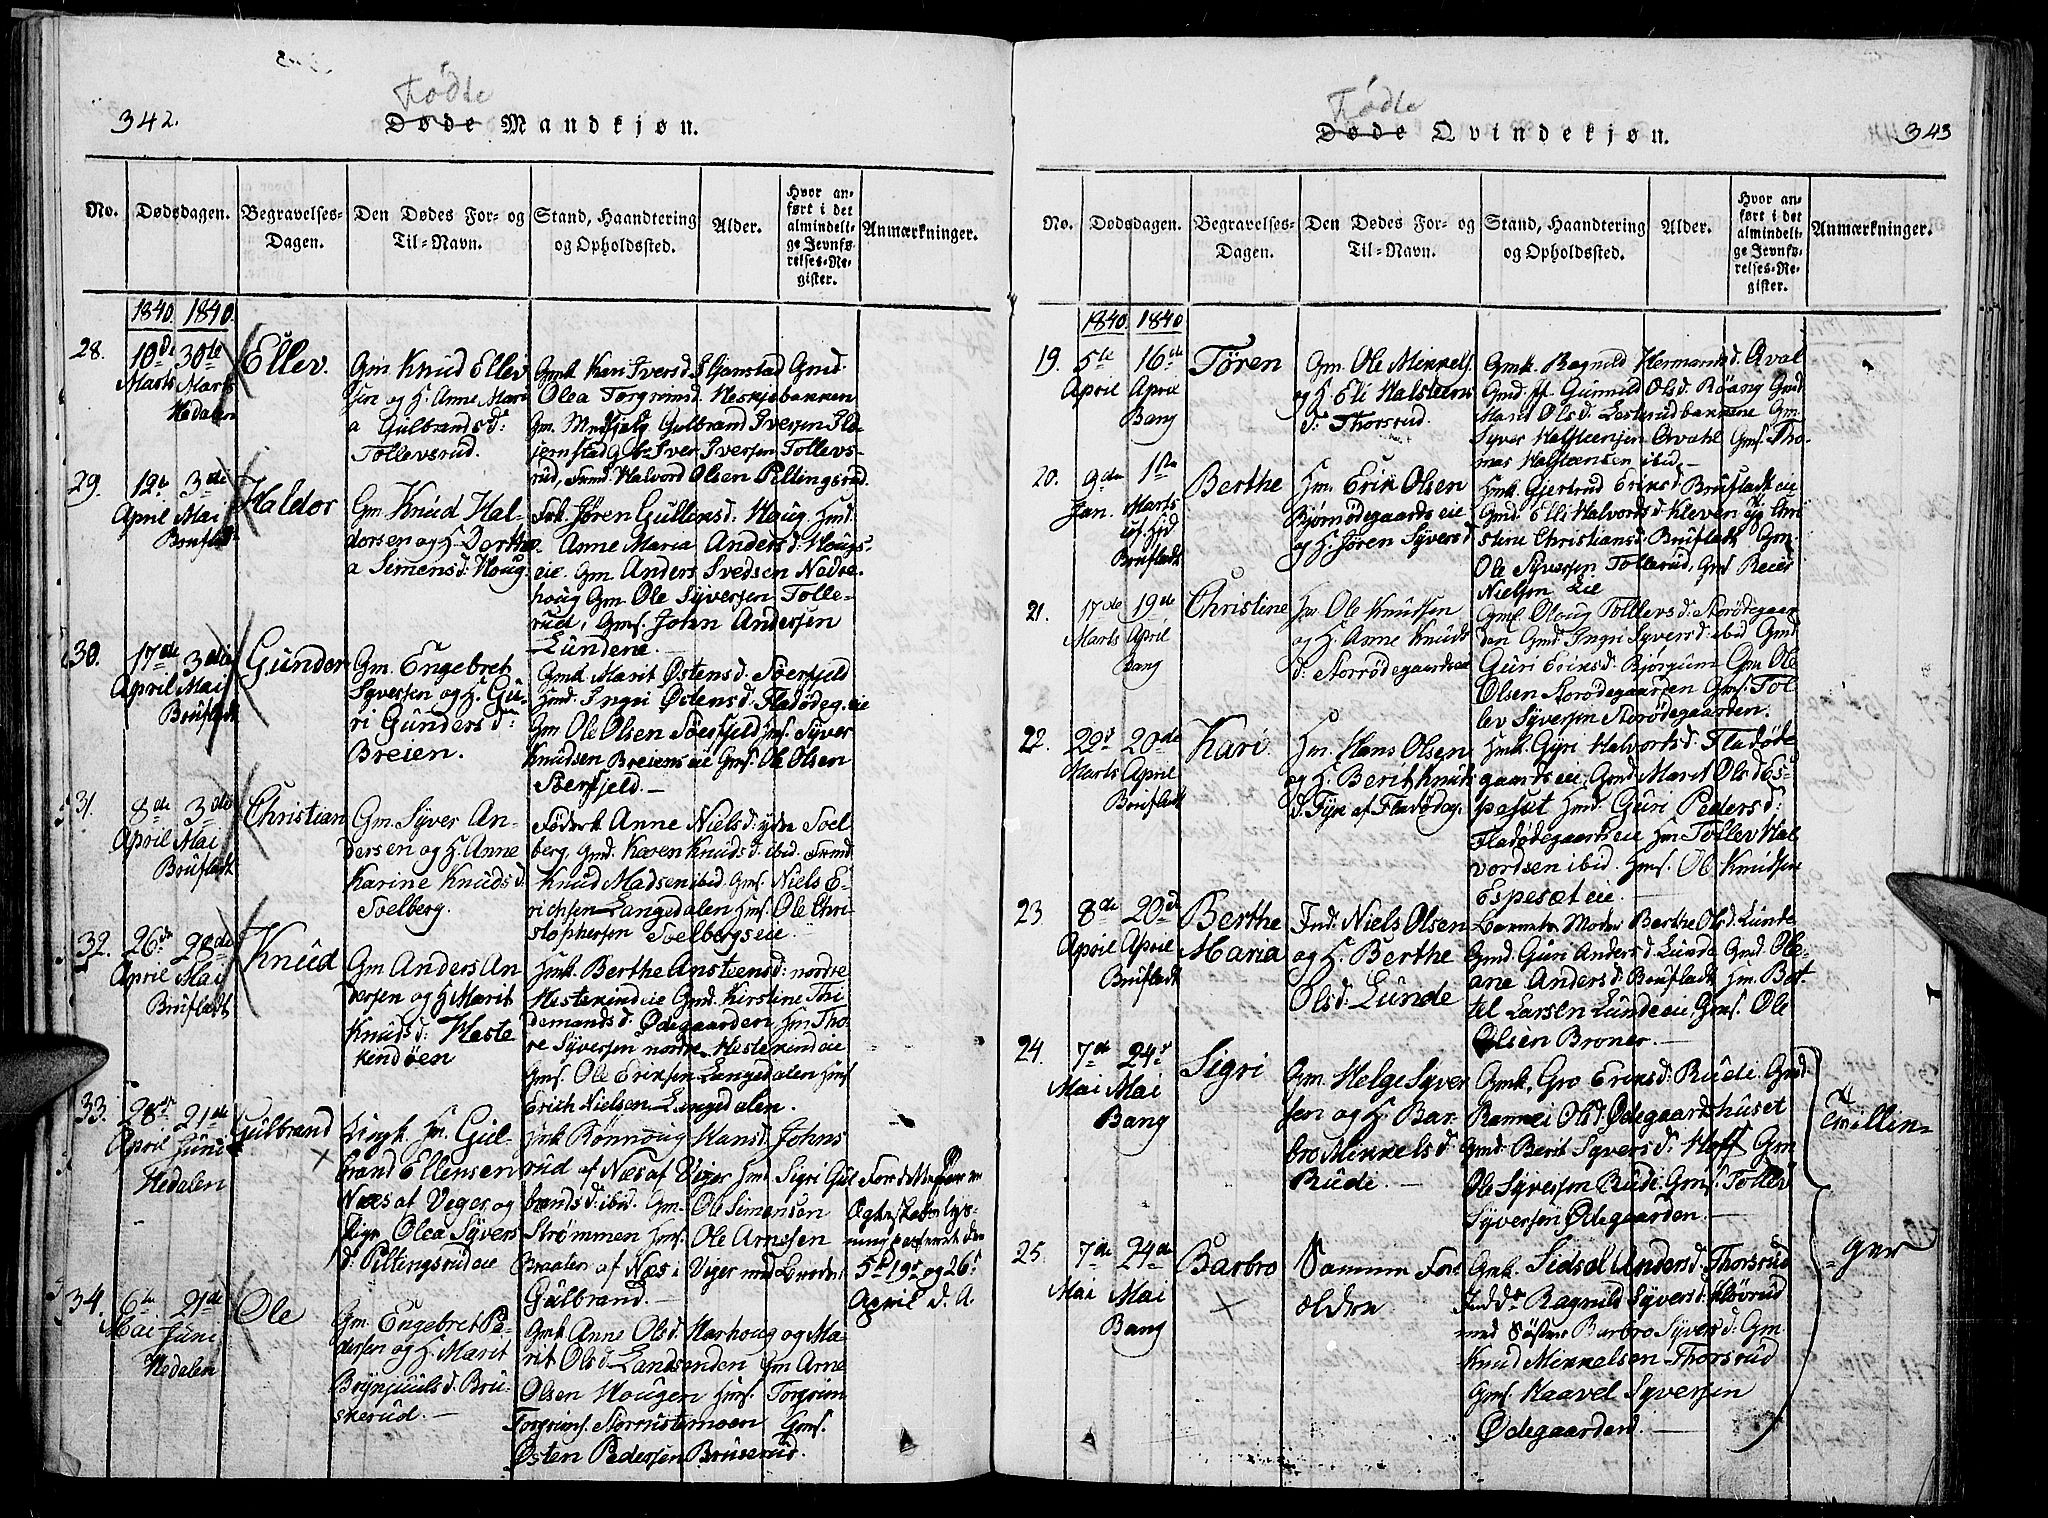 342.
Fødte
Døde Mandkjøn.
No.
Dødsdagen.
Begravelses-
Dagen.
Den Dødes For- og
Til-Navn.
Stand, Haandtering
og Opholdssted.
Alder.
Hvor an-
ført i det
almindeli-
ge Jevnfø-
relses-Re-
gister.
Anmærkninger.
1840. 1840.
28.
10de 30te
Marts Marts
Hedalen
Ellev.
Gm Knud Ellev
sen og H. Anne Mari
a Gulbrandsd:
Tollevsrud.
Gmk Kari Iversd. Gmd.
Olea Torgrimsd. Heskjebakken
Gm. Gulbrand Iversen
Iver Iversen Tollevs-
rud, Halvord Olsen Piltingsrud.
29.
12te 3die
April Mai
Brufladt
Haldor
Gm Knud Hal-
dorsen og H Dorthe
a Simensd. Houg.
Jøren Gullensd: Houg.
Anne Maria Andersd: Hougs-
eie. Gm Anders Svedsen Nedre
houg Gm Ole Syversen Tolle-
rud, Gms. John Andersen
Lundene.
30.
17de 3die
April Mai
Brufladt
Gunder
Gm. Engebret
Syversen og H. Gu-
ri Gundersd:
Breien.
Gmk Marit Østensd: Søerfjeld
Hmd. Ingri Østensd: Fladødeg. eie
Gm Ole Olsen Søerfjeld Syver
Knudsen Breiens eie Gms. Ole Olsen
Søerfjeld. —
31.
8de 3die
April Mai
Brufladt
Christian
Gm. Syver An-
dersen og H. Anne
Karine Knudsd.
Soelberg.
Anne Nielsd: ydre Soel
berg, Gmd. Karen Knudsd. ibid.
Knud Madsen ibid. Gms. Niels E-
richsen Langedalen Hms. Ole Chri-
stophersen Soelbergseie.
32.
26de 28de
April Mai
Brufladt
Knud
Gm Anders An
dersen og H Marit
Knudsd: Heste
kindøen
Hmk. Berthe Ansteensd: nordre
Hestekindeie Gmd. Kirstine Thi
demandsd. Ødegaarden, Hm Tho-
re Syversen nordre Hestekindeie
Gms. Ole Eriksen Langedalen Hms
Erich Nielsen Langedalen.
33.
28de 21de
April Juni
Hedalen
Gulbrand
Gul-
brand Ellensen
Næs af Veger og
Olea Syvers
d. Piltingsrudeie
Rønnoug Hansd. Johns
rud af Næs af Viger Sigri Gul
brandsd: ibid. Gm. Ole Simensen
Strømmen Hms. Ole Arnesen
Braaten af Næs i Viger
Gulbrand.
April d. A.
34.
6te 21de
Mai Juni
Hedalen
Ole
Gm. Engebret Pe-
dersen og H Marit
Brynjuulsd. Bru-
skerud. —
Gmk Anne Olsd. Marhoug og Ma-
rit Olsd. Landsenden Gm Arne
Olsen Hougen Hms. Torgrim
Torgrims. Gms.
Østen Pedersen Bruserud.
343
Fødte
Døde Qvindekjøn.
No.
Dødsdagen.
Begravelses-
Dagen.
Den Dødes For- og
Til-Navn.
Stand, Haandtering
og Opholdssted.
Alder.
Hvor an-
ført i det
almindeli-
ge Jevnfø-
relses-Re-
gister.
Anmærkninger.
1840. 1840
19.
5te 16de
April April
Bang
Tören
Gm. Ole Mikkels.
og H. Eli Halsteens
d: Thorsrud.
Gmk. Ragnild Hermansd. Qval
Gmd. Gunnild Olsd. Röang Gmd.
Marit Olsd. Gm.
Syver Halsteensen Qvahl Gms. Tho-
mas Halsteensen ibid —
20.
9de 1ste
Jan. Marts
Brufladt
Berthe
Hm. Erik Olsen
Bjørnødegaards eie
og H. Jøren Syversd.
Hmk. Gjertrud Eriksd. Brufladt eie
Gmd. Elli Halvordsd. Kleven og Chri
stine Christiansd. Brufladt Gm.
Ole Syversen Tollerud, Gms Reier
Nielsen Lie
21.
17de 19de
Marts April
Bang
Christine
Hm Ole Knudsen
og H. Anne Knuds
d: Storrödegaardseie
Oloug Tollevsd: Storödegaar
den Gmd. Ingri Syversd: ibid Gmd.
Guri Eriksd: Bjørgum Gm Ole
Olsen Storødegaarden Gms. Tol
lev Syversen Storødegaarden.
22.
22de 20de
Marts April
Brufladt
Kari
Hm. Hans Olsen
og H. Berit Knuts
d. af Fladødeg.
Hmk. Gyri Halvorsd: Fladøde
gaardseie, Gmd. Marit Olsd Es-
peset Hmd. Guri Pedersd:
Fladødegaardseie Hm Tollev Hal
vordsen ibid. Hms. Ole Knudsen
Espesæteie.
23
8de 20de
April April
Brufladt
Berthe
Maria
Ind. Niels Olsen
og H. Berthe
Olsd. Lunde
Barnets Moder Berthe Olsd. Lunde
Gmd. Guri Andersd. Lunde Gmd. Ole-
ane Andersd: Brufladt Hm. Bot-
tel Larsen Lundeeie, Gms. Ole
Olsen Broner. —
24.
7de 24de
Mai Mai
Bang
Sigri
Gm. Helge Syver
sen og H. Bar
bro Mikkelsd:
Rudi. —
Gmk. Gro Eriksd: Rudi. Gmd.
Rannei Olsd. Ødegaardshuset
Gmd. Berit Syversd: Hoff Gm
Ole Syversen Rudi Gms. Tollev
Syversen Ødegaarden. —
Tvillin-
ger
25.
7de 24de
Mai Mai
Bang
Barbro
Samme For
ældre
Gmk. Sidsel Andersd. Thorsrud
Ragnild Syversd.
med Søster Barbro Syversd: Gm.
Knud Mikkelsen Thorsrud
Gms. Kaavel Syversen
Ødegaarden. —